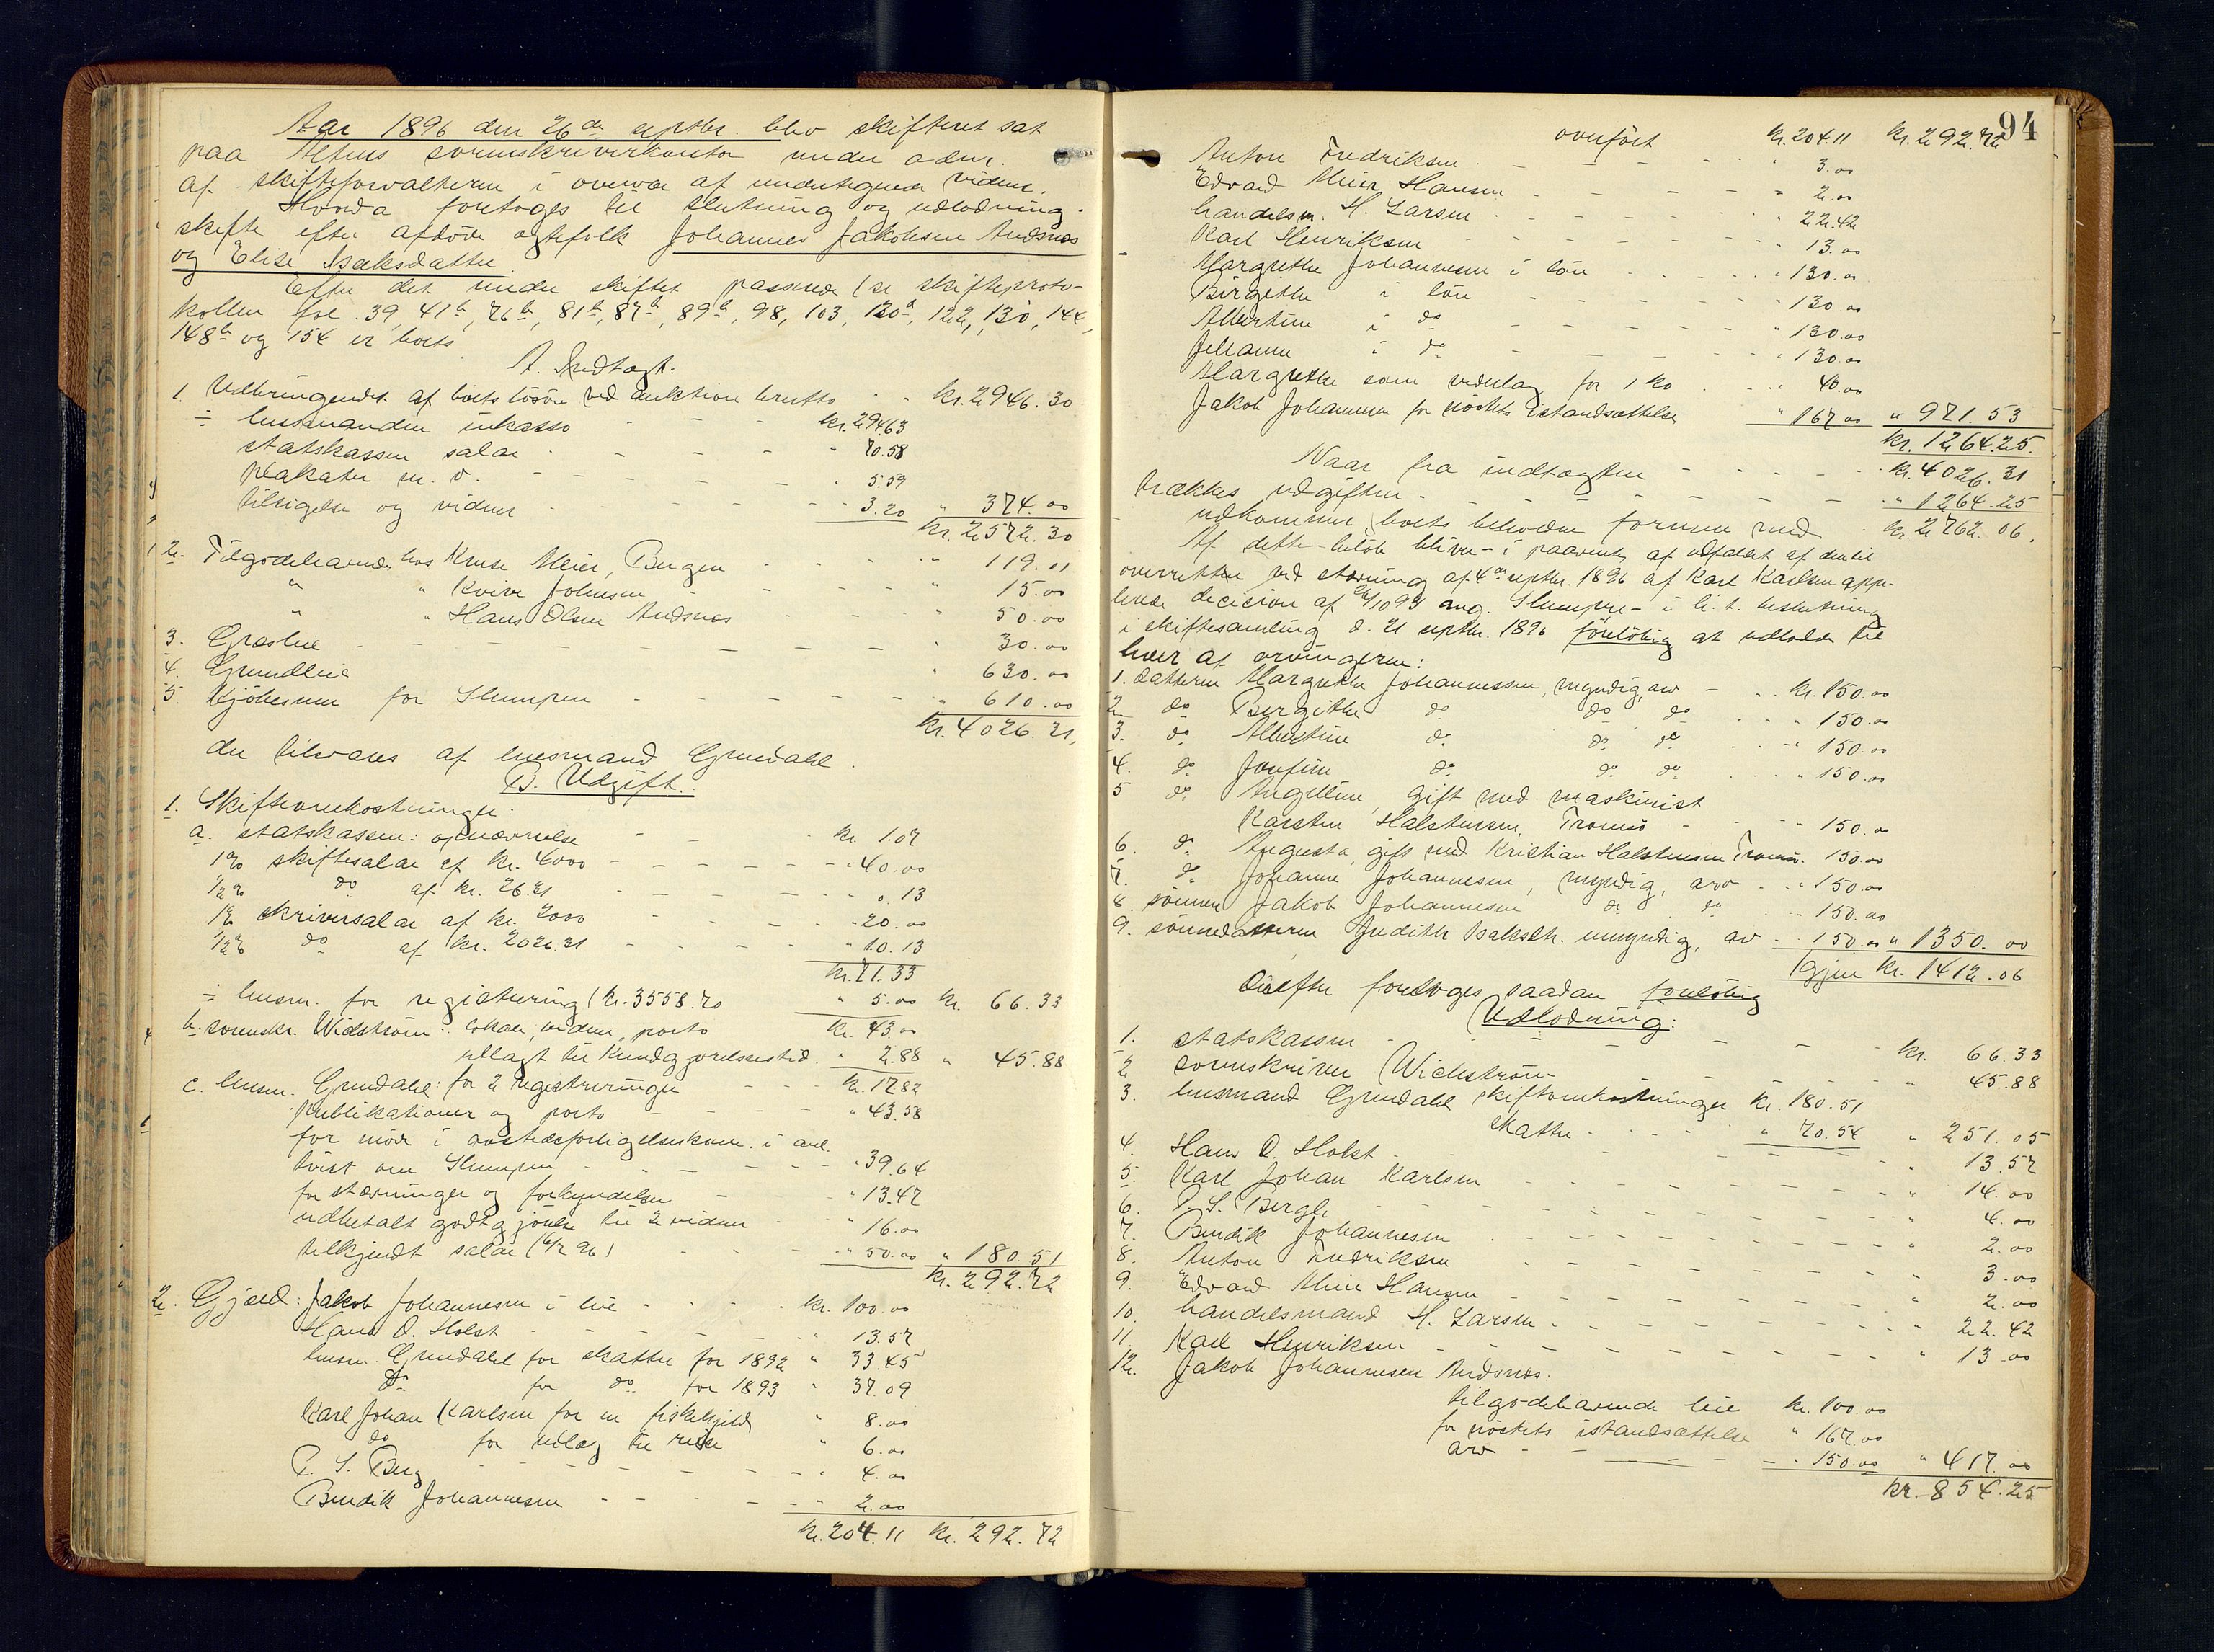 Aar 1896 den 26de septbr. blev skifteret sat
paa Altens sorenskriverkontor under adm.
af skifteforvalteren i overvær af undertegnede vidner.
Hvorda foretoges til slutning og udlodning
skifte efter afdöde ægtefolk Johannes Jakobsen Andsnæs
og Elise Isaksdatter
Efter det under skiftet passerede (se skifteproto-
kollen fol. 39, 41b, 76b, 81b, 87b, 89b, 98, 103, 120b, 122, 130, 144,
148b og 154 er boets
A. Indtægt:
1. Udbringendet af boets lösöre ved auktion brutto - - kr. 2946.30
÷ lensmanden inkasso - - - kr. 294.63
statskassen salær - - - - " 70.58
plakater m. v. - - - - " 5.59
tilsigelse og vidner - - - - 3.20 " 374.00
kr. 2572.30
2. Tilgodehavende hos Kruse Meier, Bergen - - - " 119.01
" " Kvive Johnsen - - - " 15.00
" " Hans Olsen Andsnæs - - - " 50.00
3. Græsleie - - - - - - " 30.00
4. Grundleie " 630.00
5. Kjöbesum for Slumpen - - - - " 610.00
kr. 4026.31,
der tilsvares af lensmand Grundahl.
B. Udgift.
1. Skifteomkostninger:
a. statskassen: opnævnelse - - kr. 1.07
1% skiftesalær af kr. 4000 - - - - " 40.00
1/2% do af kr. 26.31 - - - - " 0.13
1% skriversalær af kr. 2000 - - - " 20.00
1/2% do af kr. 2026.31 - - - " 10.13
kr. 71.33
÷ lensm. for registrering (kr. 3558.70 " 5.00 kr. 66.33
b. sorenskr. Widström: lokale, vidner, porto kr. 43.00
udlagt til Kundgjörelsestid. " 2.88 " 45.88
c. lensm. Grundahl: for 2 registreringer - - kr. 17.82
publikationer og porto - - - - " 43.58
for möde i aastedsforligelseskom. i anl.
tvist om Slumpen - - - - - " 39.64
for stævninger og forkyndelser - - " 13.47
udbetalt godtgjörelse til 2 vidner - " 16.00
tilkjendt salær (6/2 96) - - - " 50.00 " 180.51
kr. 292.72
2. Gjæld: Jakob Johannesen i leie - - - kr. 100.00
Hans O. Holst - - - - - - " 13.57
lensm. Grundahl for skatter for 1892 " 33.45
do for do for 1893 " 37.09
Karl Johan Karlsen for en fiskehjeld " 8.00
do for udlæg til reise " 6.00
P. S. Berg - - - - - - " 4.00
Bendik Johannesen - - - - - " 2.00
kr. 204.11 kr. 292.72
94
overfört kr. 204.11 kr. 292.72
Anton Fredriksen - - - - - " 3.00
Edvard Meier Hansen - - - - - " 2.00
handelsm. H. Larsen - - - - - " 22.42
Karl Henriksen - - - - - " 13.00
Margrethe Johannesen i lön - - - - " 130.00
Birgitte i lön - - - - " 130.00
Albertine i do - - - - " 130.00
Johanne i do - - - - " 130.00
Margrethe som vederlag for 1 ko - - " 40.00
Jakob Johannesen for nöstets istandsættelse " 167.00 " 971.53
kr. 1264.25.
Naar fra indtægten - - - - kr. 4026.31
trækkes udgiften - - - - - - " 1264.25
udkommer boets beholdne formue med - kr. 2762.06.
Af dette belöb bliver - i paavente af udfaldet af den til
overretten ved stævning af 4de septbr. 1896 af Karl Karlsen appe-
lerede decision af 26/10 93 ang. Slumpen - i h. t. beslutning
i skiftesamling d. 21 septbr. 1896 forelöbig at udlodde til
hver af arvingerne:
1. datteren Margrethe Johannessen, myndig, arv - - kr. 150.00
2. do Birgitte do do do - - " 150.00
3. do Albertine do do do - - " 150.00
4. do Josefine do do do - - " 150.00
5 do Angelline, gift med maskinist
Karsten Halstensen, Tromsö - - - " 150.00
6. do Augusta, gift med Kristian Halstensen Tromsö. 150.00
7. do Johanne Johannesen, myndig, arv - - " 150.00
8. sönnen Jakob Johannesen do do - - 150.00
9. sönnedatteren Judith Isaksdtr. umyndig, arv - 150.00 " 1350.00
Igjen kr. 1412.06
Derefter foretoges saadan forelöbig
Udlodning:
1. statskassen - - - - - - kr. 66.33
2 sorenskriver Widström - - - - - " 45.88
3. lensmand Grundahl skifteomkostninger kr. 180.51
skatter - - - - " 70.54 " 251.05
4. Hans O. Holst - - - - - - " 13.57
5. Karl Johan Karlsen - - - - - " 14.00
6. P. S. Berg - - - - - - " 4.00
7. Bendik Johannesen - - - - - " 2.00
8. Anton Fredriksen - - - - - " 3.00
9. Edvard Meier Hansen - - - - - " 2.00
10. handelsmand H. Larsen - - - - - " 22.42
11. Karl Henriksen - - - - - - " 13.00
12. Jakob Johannesen Andsnæs:
tilgodehavende leie kr. 100.00
for nöstets istandsættelse " 167.00
arv - - - - - " 150.00 " 417.00
kr. 854.25